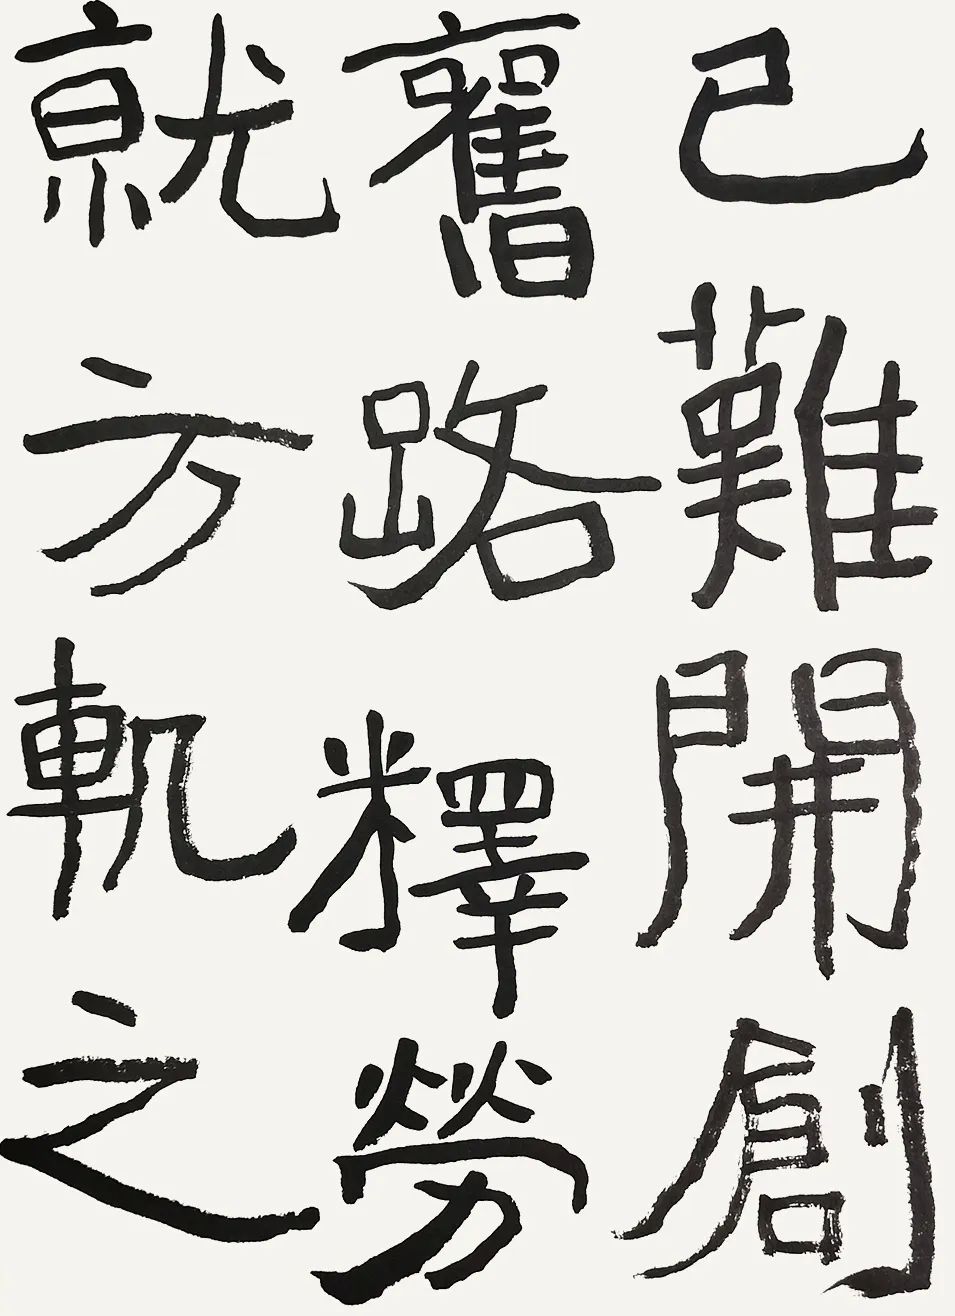 已難開創
舊路釋勞
就方軌之